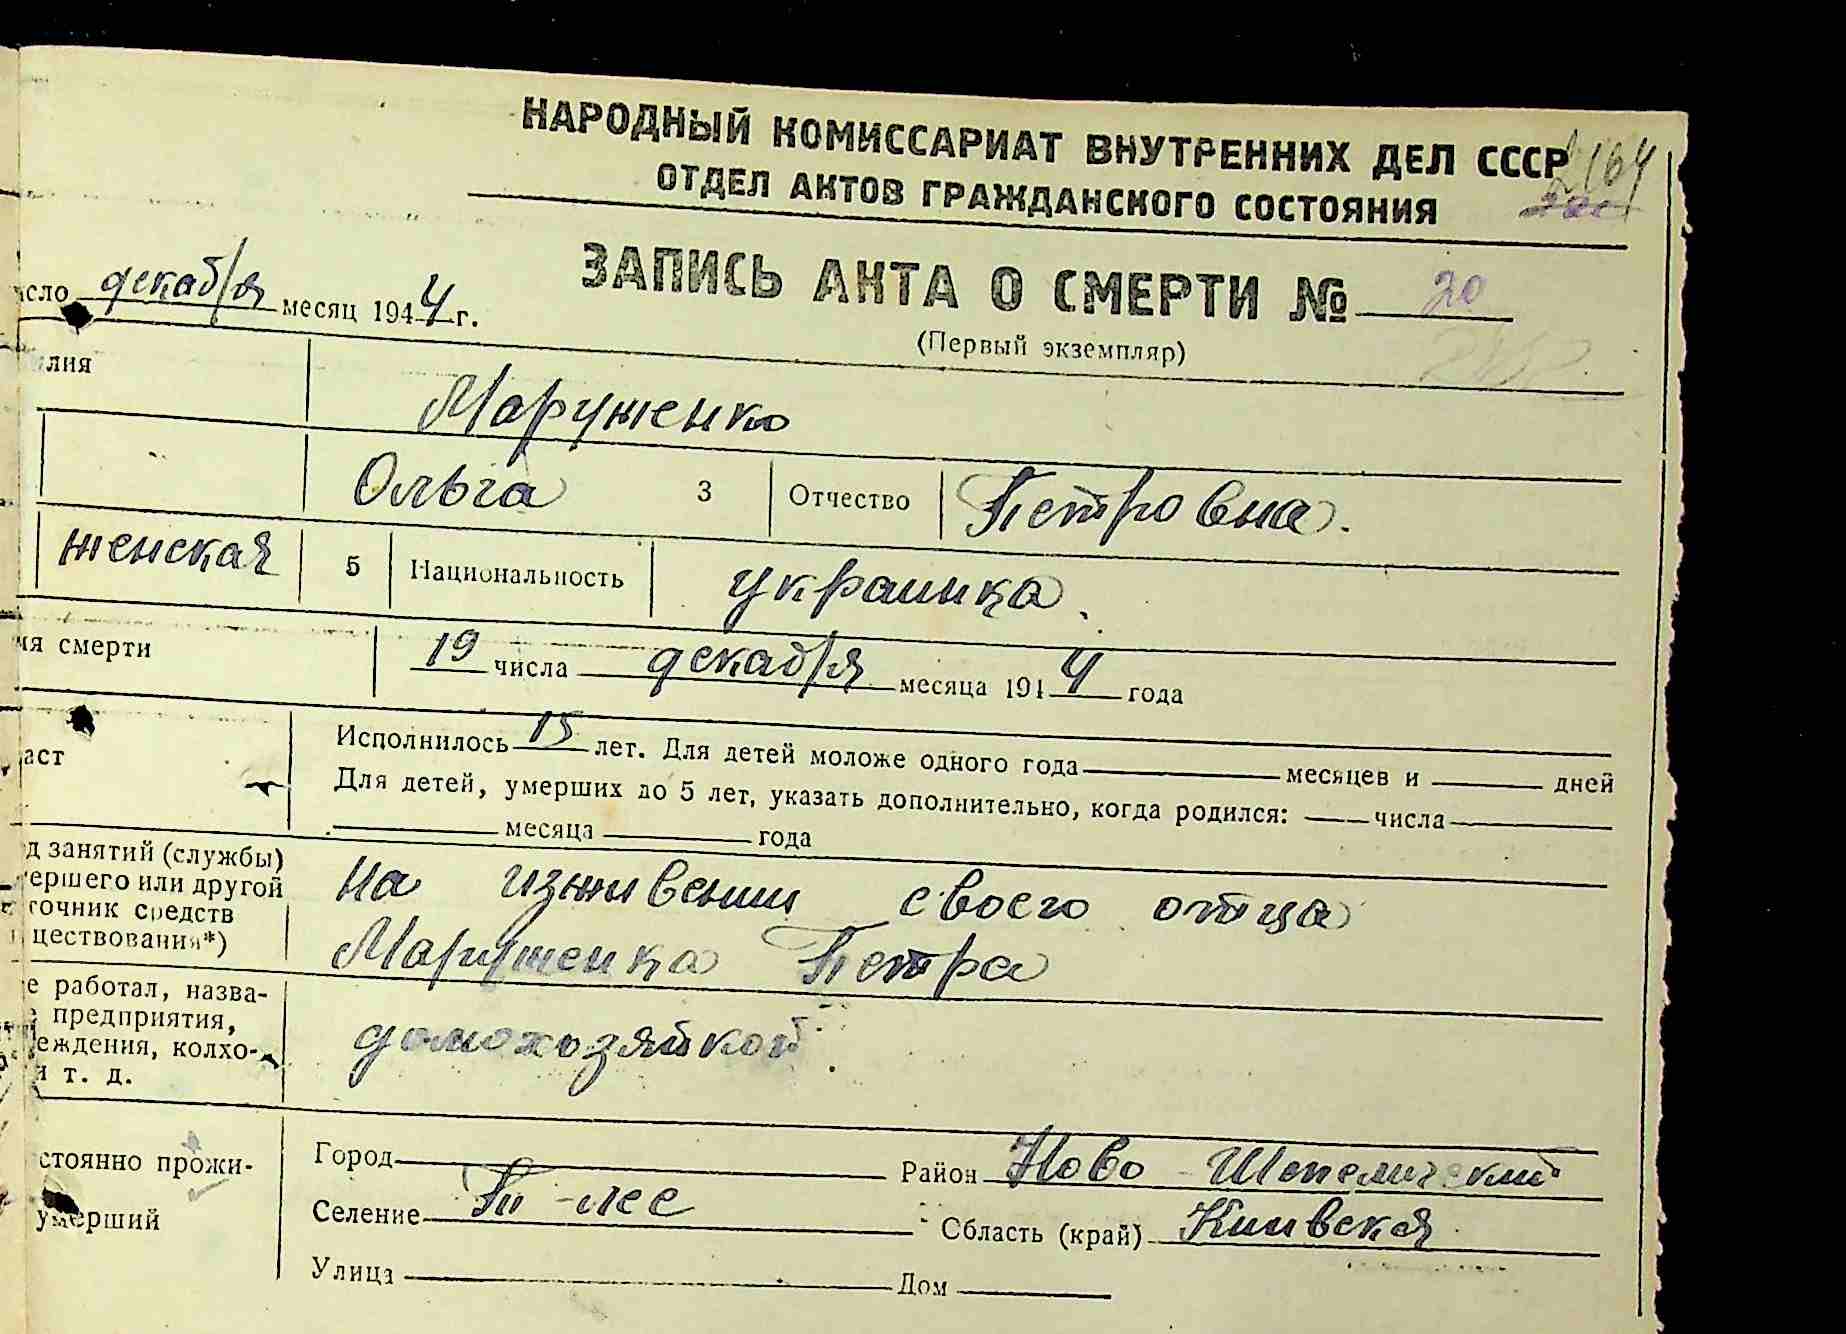 НАРОДНЫЙ КОМИССАРИАТ ВНУТРЕННИХ ДЕЛ СССР
164
ОТДЕЛ АКТОВ ГРАЖДАНСКОГО СОСТОЯНИЯ
ЗАПИСЬ АКТА О СМЕРТИ № 20
сло декабря месяц 1944 г.
(Первый экземпляр)
лия Маруженко
Ольга 3 Отчество Петровна.
женская 5 Национальность украинка.
мя смерти 19 числа декабря месяца 1944 года
Исполнилось 15 лет. Для детей моложе одного года месяцев и дней
аст
Для детей, умерших до 5 лет, указать дополнительно, когда родился: числа
месяца года
д занятий (службы)
ершего или другой
точник средств
ществования*)
на иживении своего отца
Маруженка Петра
е работал, назва-
е предприятия,
еждения, колхо-
и т. д.
домохозяйкой.
стоянно прожи-
умерший
Город Район Ново-Шепеличский
Селение Т-лес Область (край) Киивская
Улица Дом